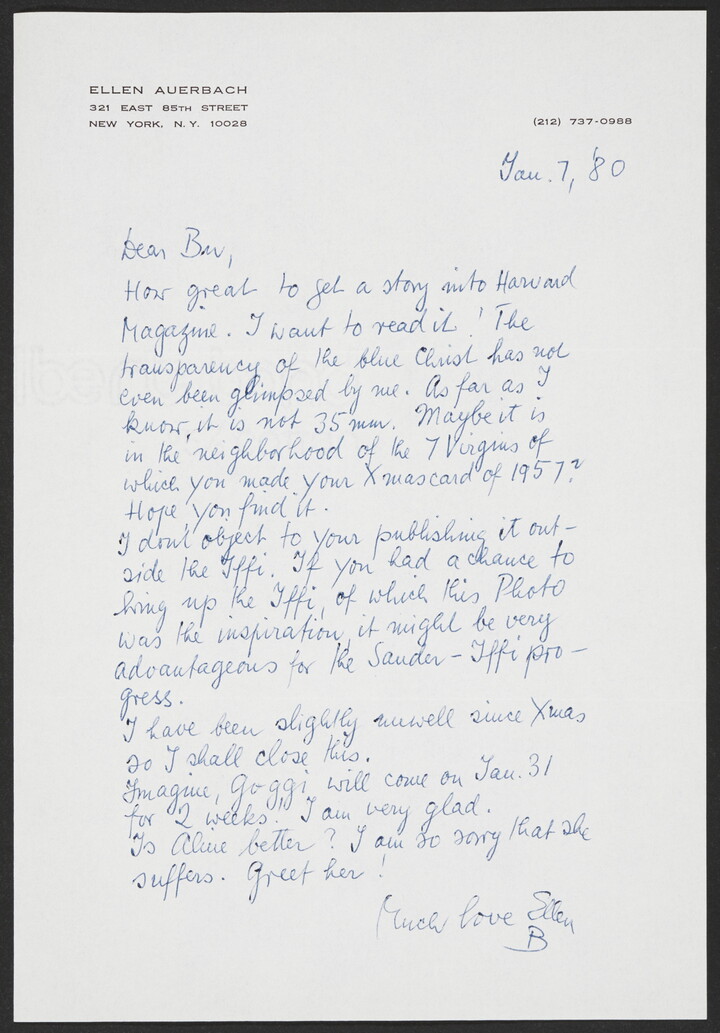 ELLEN AUERBACH
321 EAST 85TH STREET
NEW YORK, N.Y. 10028
(212) 737-0988
Jan. 7, '80
Dear
How great to get a story into Harvard
Magazine. I want to read it! The
transparency of the blue Christ has not
even been glimpsed by me. As far as I
know, it is not 35 mm. Maybe it is
in the neighborhood of the 7 Virgins of
which you made your Xmascard of 1957?
Hope you find it.
I don't object to your publishing it out-
side the Iffi. If you had a chance to
bring up the Iffi, of which this Photo
was the inspiration, it might be very
advantageous for the Sander-Iffi pro-
gress.
I have been slightly unwell since Xmas
so I shall close this.
Imagine, Goggi will come on Jan. 31
for 2 weeks! I am very glad.
Is Aline better? I am so sorry that she
suffers. Greet her!
Much love Ellen
B